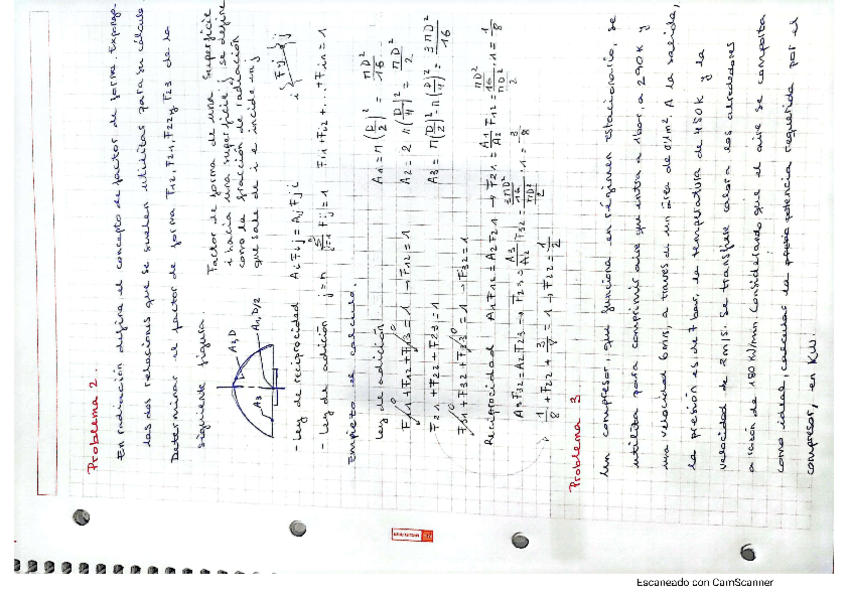 Problema 2.
En radiación defina el concepto de factor de forma. Exponga
las dos relaciones que se suelen utilizar para su cálculo.
Determinar el factor de forma F12, F21, F22 y F23 de la
siguiente figura.
Factor de forma de una superficie
i hacia una superficie j se define
como la fracción de radiación
que sale de i e incide en j
A2, D
A1, D/2
A3
i
Fij
j
- Ley de reciprocidad Ai Fij = Aj Fji
- Ley de adición Fij = 1 Fi1 + Fi2 + ... + Fin = 1
Empiezo el cálculo.
Ley de adición
F11 + F12 + F13 = 1 → F12 = 1
F21 + F22 + F23 = 1
F31 + F32 + F33 = 1 → F32 = 1
Reciprocidad A1 F12 = A2 F21 → F21 = A1/A2 F12 = · 1 = 1/8
A3 F32 = A2 F23 → F23 = A3/A2 F32 = · 1 = 3/8
1/8 + F22 + = 1 → F22 = 1/2
Problema 3
Un compresor, que funciona en régimen estacionario, se
utiliza para comprimir aire que entra a 1 bar, a 290 K y
una velocidad 6 m/s, a través de un área de 0'1 m². A la salida,
la presión es de 7 bar, la temperatura de 450 K y la
velocidad de 2 m/s. Se transfiere calor a los alrededores
a razón de 180 KJ/min. Considerando que el aire se comporta
como ideal, calcular la potencia requerida por el
compresor, en KW.
Escaneado con CamScanner